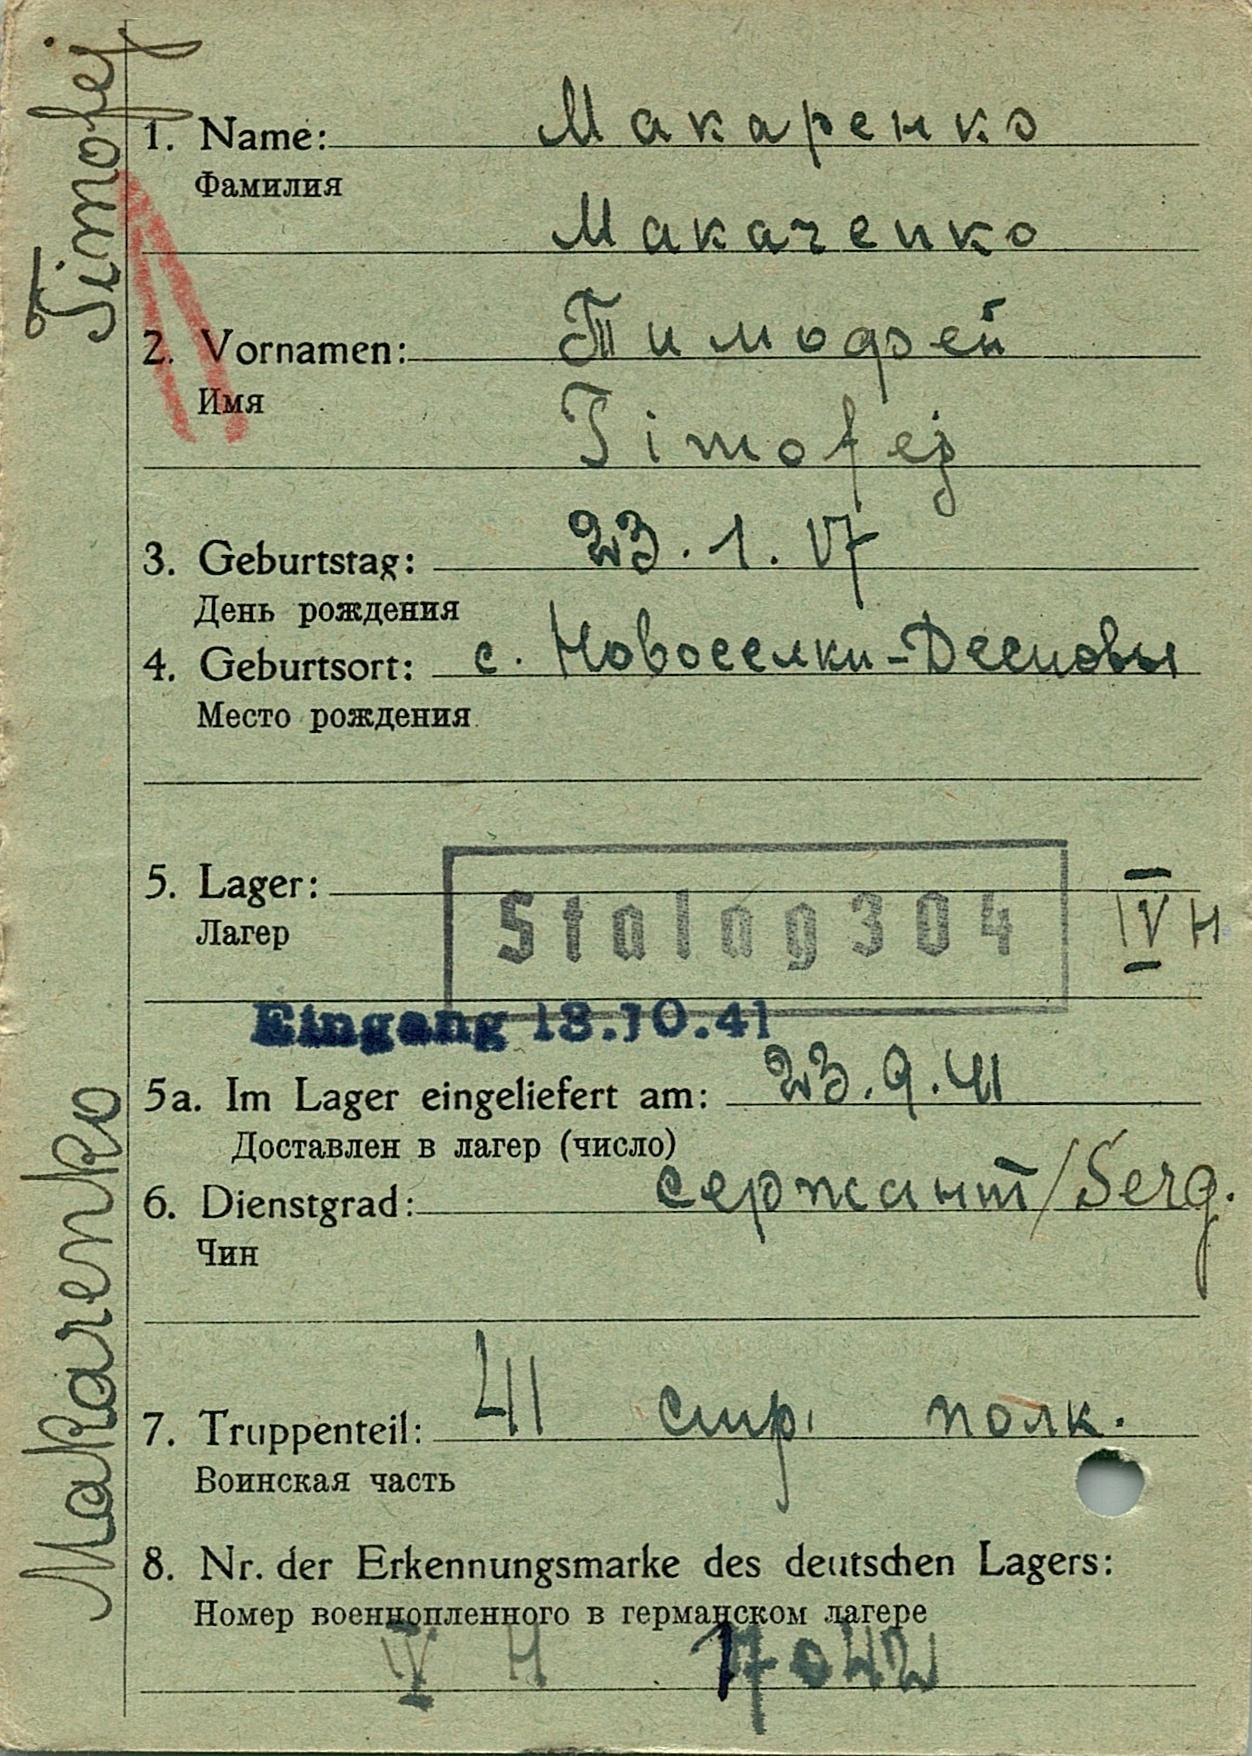 Timofej
Makarenko
1. Name: Макаренко
Фамилия
Макаченко
2. Vornamen: Тимофей
Имя
Timofej
3. Geburtstag: 23.1.17
День рождения
4. Geburtsort: с. Новоселки-Десновы
Место рождения
5. Lager: Stalag 304 IV H
Лагер
Eingang 18.10.41
5a. Im Lager eingeliefert am: 23.9.41
Доставлен в лагер (число)
6. Dienstgrad: сержант/Serg.
Чин
7. Truppenteil: 411 стр. полк.
Воинская часть
8. Nr. der Erkennungsmarke des deutschen Lagers:
Номер военнопленного в германском лагере
IV H 17042